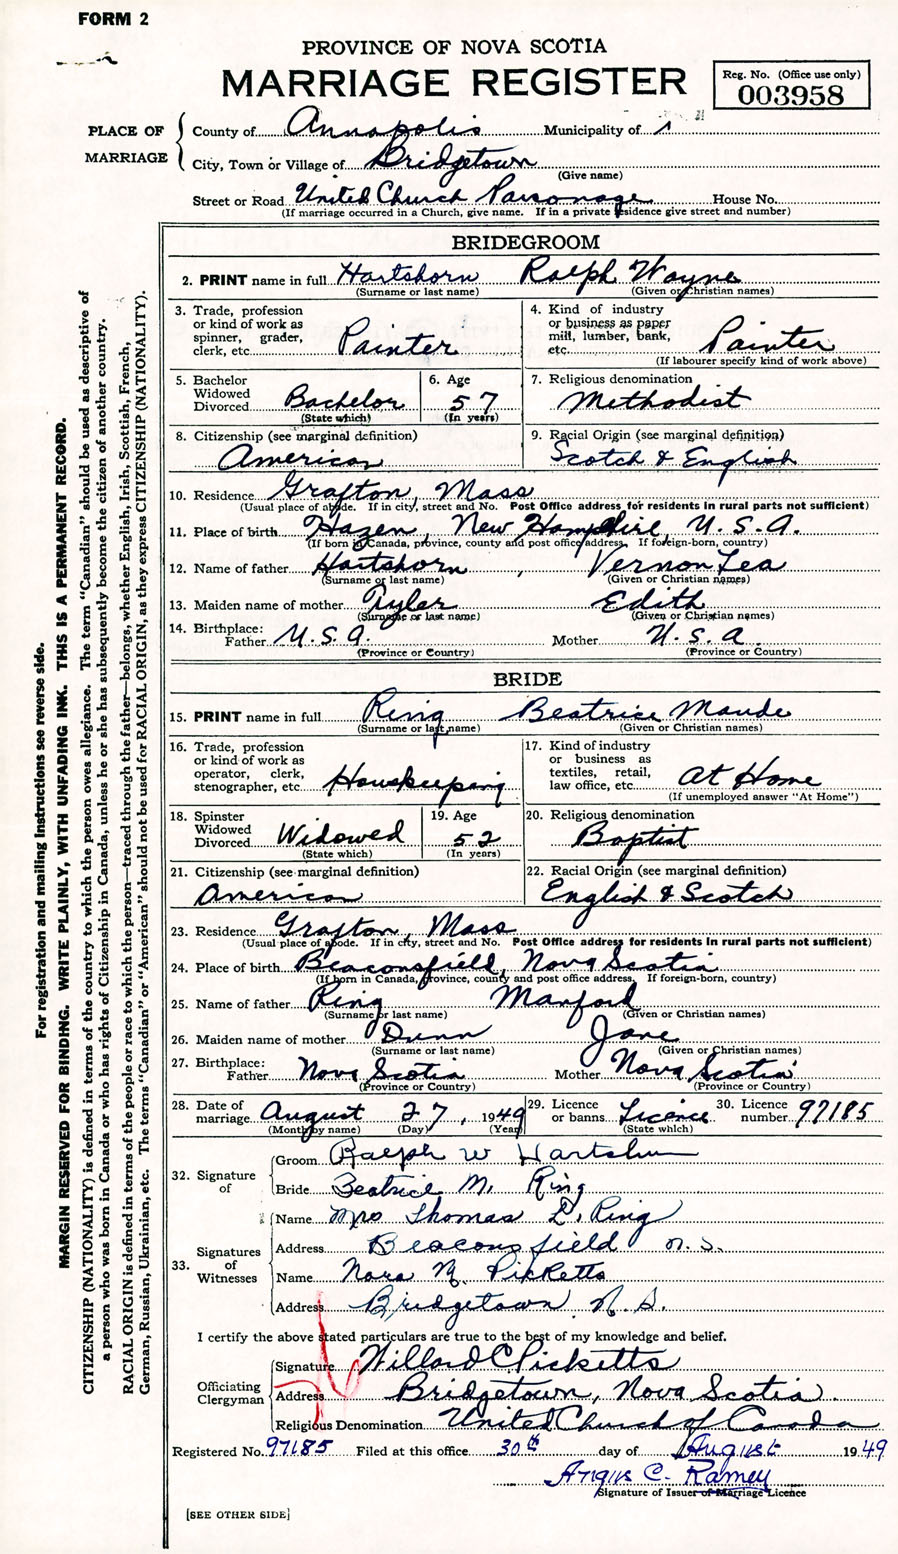 FORM 2
PROVINCE OF NOVA SCOTIA
MARRIAGE REGISTER
Reg. No. (Office use only)
003958
PLACE OF MARRIAGE
County of Annapolis Municipality of
City, Town or Village of Bridgetown
(Give name)
Street or Road United Church Parsonage House No.
(If marriage occurred in a Church, give name. If in a private residence give street and number)
BRIDEGROOM
2. PRINT name in full Hartshorn Ralph Wayne
(Surname or last name) (Given or Christian names)
3. Trade, profession or kind of work as spinner, grader, clerk, etc. Painter
4. Kind of industry or business as paper mill, lumber, bank, etc. Painter
(If labourer specify kind of work above)
5. Bachelor Widowed Divorced Bachelor
(State which)
6. Age 57
(In years)
7. Religious denomination
Methodist
8. Citizenship (see marginal definition)
American
9. Racial Origin (see marginal definition)
Scotch & English
10. Residence Grafton, Mass
(Usual place of abode. If in city, street and No. Post Office address for residents in rural parts not sufficient)
11. Place of birth Hazen, New Hampshire, U.S.A.
(If born in Canada, province, county and post office address. If foreign-born, country)
12. Name of father Hartshorn, Vernon Lea
(Surname or last name) (Given or Christian names)
13. Maiden name of mother Tyler Edith
(Surname or last name) (Given or Christian names)
14. Birthplace: Father U.S.A. Mother U.S.A.
(Province or Country) (Province or Country)
BRIDE
15. PRINT name in full Ring Beatrice Maude
(Surname or last name) (Given or Christian names)
16. Trade, profession or kind of work as operator, clerk, stenographer, etc. Housekeeping
17. Kind of industry or business as textiles, retail, law office, etc. At Home
(If unemployed answer "At Home")
18. Spinster Widowed Divorced Widowed
(State which)
19. Age 52
(In years)
20. Religious denomination
Baptist
21. Citizenship (see marginal definition)
American
22. Racial Origin (see marginal definition)
English & Scotch
23. Residence Grafton, Mass
(Usual place of abode. If in city, street and No. Post Office address for residents in rural parts not sufficient)
24. Place of birth Beaconsfield, Nova Scotia
(If born in Canada, province, county and post office address. If foreign-born, country)
25. Name of father Ring Manford
(Surname or last name) (Given or Christian names)
26. Maiden name of mother Dunn Jane
(Surname or last name) (Given or Christian names)
27. Birthplace: Father Nova Scotia Mother Nova Scotia
(Province or Country) (Province or Country)
28. Date of marriage August 27, 1949
(Month by name) (Day) (Year)
29. Licence or banns Licence
(State which)
30. Licence number 97185
32. Signature of
Groom Ralph W Hartshorn
Bride Beatrice M. Ring
33. Signatures of Witnesses
Name Mrs Thomas L. Ring
Address Beaconsfield N.S.
Name Nora M. Picketts
Address Bridgetown N.S.
I certify the above stated particulars are true to the best of my knowledge and belief.
Officiating Clergyman
Signature Willard C Picketts
Address Bridgetown, Nova Scotia.
Religious Denomination United Church of Canada
Registered No. 97185 Filed at this office 30th day of August 1949
Angus C. Ramey
Signature of Issuer of Marriage Licence
[SEE OTHER SIDE]
For registration and mailing instructions see reverse side.
MARGIN RESERVED FOR BINDING. WRITE PLAINLY, WITH UNFADING INK. THIS IS A PERMANENT RECORD.
CITIZENSHIP (NATIONALITY) is defined in terms of the country to which the person owes allegiance. The term "Canadian" should be used as descriptive of
a person who was born in Canada or who has rights of Citizenship in Canada, unless he or she has subsequently become the citizen of another country.
RACIAL ORIGIN is defined in terms of the people or race to which the person—traced through the father—belongs, whether English, Irish, Scottish, French,
German, Russian, Ukrainian, etc. The terms "Canadian" or "American" should not be used for RACIAL ORIGIN, as they express CITIZENSHIP (NATIONALITY).